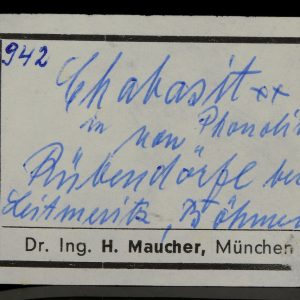 942
Chabasit xx
in von Phonolit
Rübendörfl bei
Leitmeritz, Böhmen
Dr. Ing. H. Maucher, München